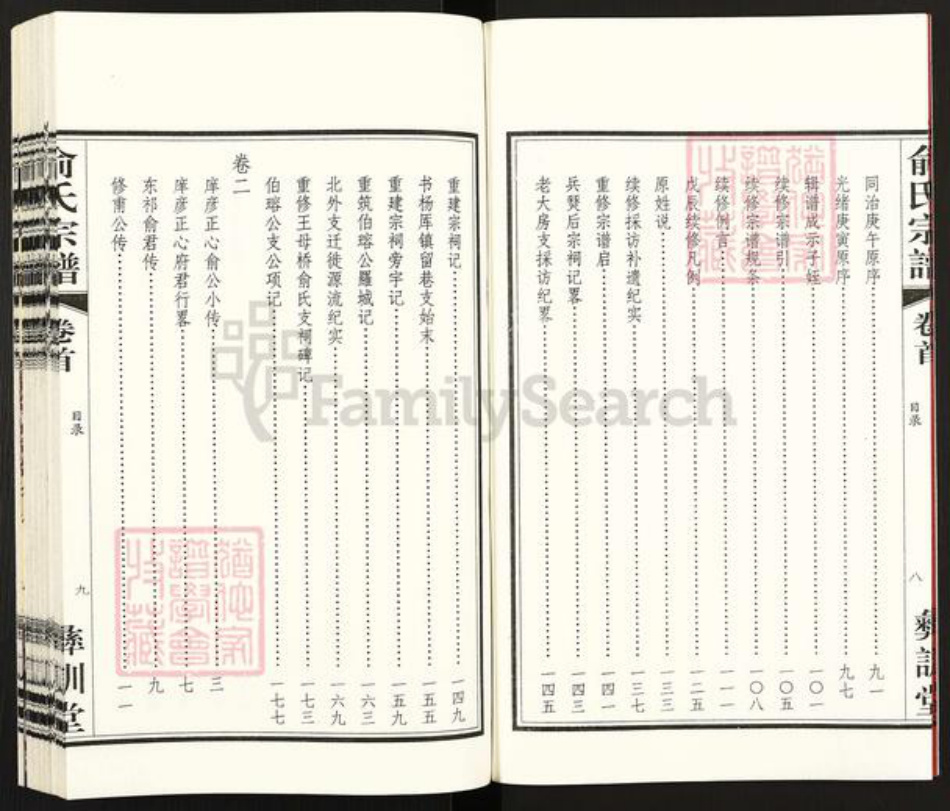 俞氏宗譜
卷首
目录
八
彝訓堂
同治庚午原序 九一
光绪庚寅原序 九七
辑谱成示子姪 一〇一
续修宗谱引 一〇五
续修宗谱规条 一〇八
续修例言 一一一
戊辰续修凡例 一二五
原姓说 一二七
续修採访补遗纪实 一三七
重修宗谱启 一四一
兵燹后宗祠记畧 一四三
老大房支採访纪畧 一四五
重建宗祠记 一四九
书杨厍镇留巷支始末 一五五
重建宗祠旁宇记 一五九
重筑伯瑢公羅城记 一六三
北外支迁徙源流纪实 一六九
重修王母桥俞氏支祠碑记 一七三
伯瑢公支公项记 一七七
卷二
庠彦正心俞公小传 三
庠彦正心府君行畧 七
东祁俞君传 九
修甫公传 一一
俞氏宗譜
卷首
目录
九
彝訓堂
FamilySearch